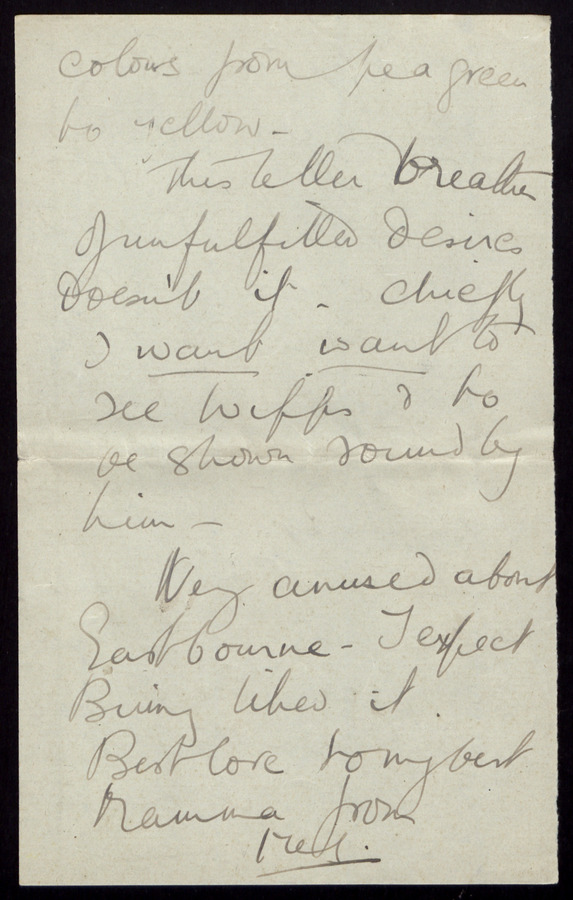 colours from pea green
to yellow -
This letter breathes
of unfulfilled desires
doesn't it - chiefly
I want want to
see Wiffs & to
be shown round by
him -
Very amused about
Eastbourne - I expect
liked it.
Best love to my best
Mamma from